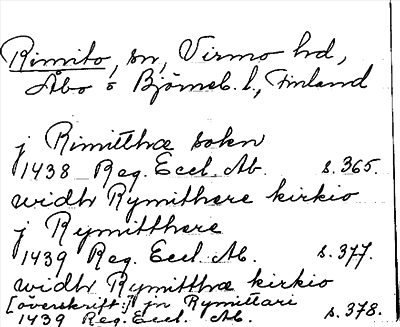 Rimito, sn, Virmo hd,
Åbo o Björneb. l., Finland
j Rimitthæ sokn
1438 Reg. Eccl. Ab. s. 365.
widh Rymitthere kirkio
j Rymitthere
1439 Reg. Eccl. Ab. s. 377.
widh Rymitthæ kirkio
[överskrift:] jn Rymittari
1439 Reg. Eccl. Ab. s. 378.